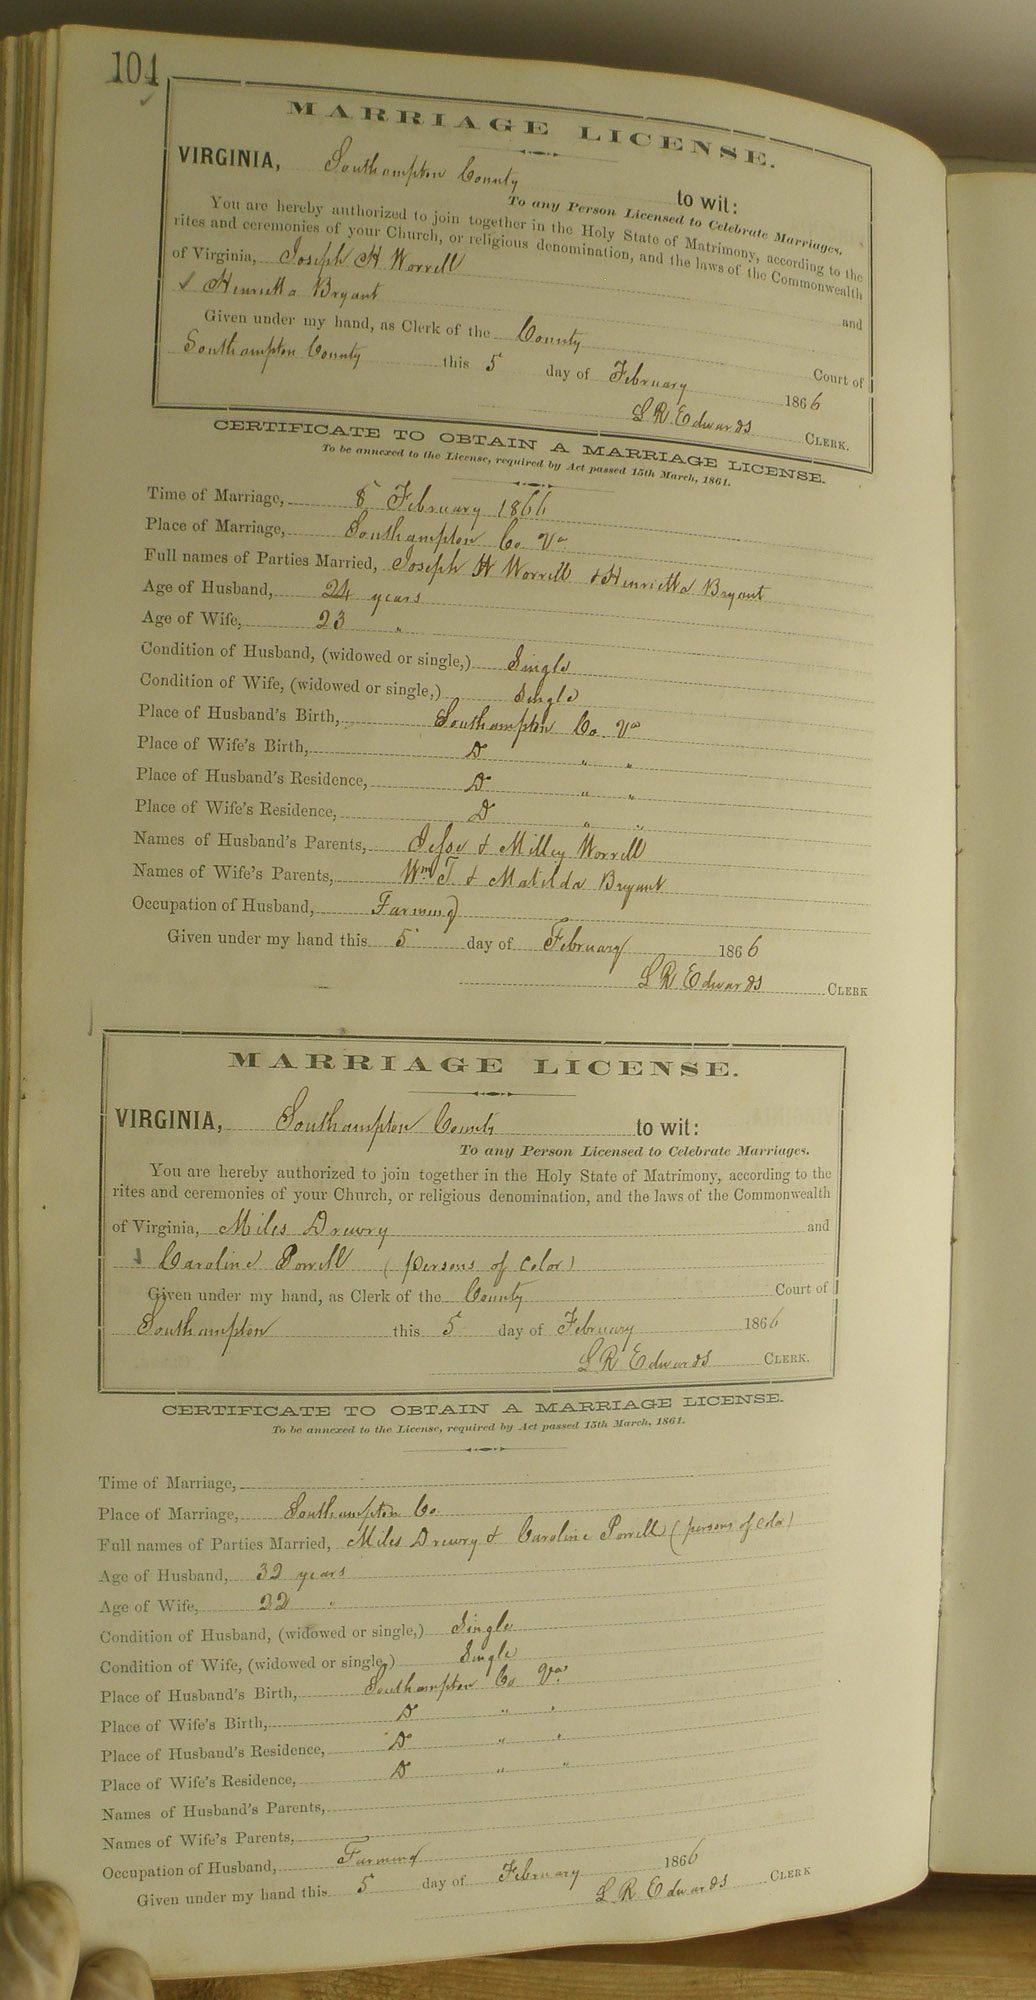 104
MARRIAGE LICENSE.
VIRGINIA, Southampton County to wit:
To any Person Licensed to Celebrate Marriages.
You are hereby authorized to join together in the Holy State of Matrimony, according to the
rites and ceremonies of your Church, or religious denomination, and the laws of the Commonwealth
of Virginia, Joseph H Worrell and
Henrietta Bryant
Given under my hand, as Clerk of the County Court of
Southampton County this 5 day of February 1866
L R Edwards CLERK.
CERTIFICATE TO OBTAIN A MARRIAGE LICENSE.
To be annexed to the License, required by Act passed 15th March, 1861.
Time of Marriage, 8 February 1866
Place of Marriage, Southampton Co. Va
Full names of Parties Married, Joseph H Worrell & Henrietta Bryant
Age of Husband, 24 years
Age of Wife, 23 "
Condition of Husband, (widowed or single,) Single
Condition of Wife, (widowed or single,) Single
Place of Husband's Birth, Southampton Co. Va
Place of Wife's Birth, Do " "
Place of Husband's Residence, Do " "
Place of Wife's Residence, Do " "
Names of Husband's Parents, Jesse & Milley Worrell
Names of Wife's Parents, Wm T. & Matilda Bryant
Occupation of Husband, Farming
Given under my hand this 5 day of February 1866
L R Edwards CLERK
MARRIAGE LICENSE.
VIRGINIA, Southampton County to wit:
To any Person Licensed to Celebrate Marriages.
You are hereby authorized to join together in the Holy State of Matrimony, according to the
rites and ceremonies of your Church, or religious denomination, and the laws of the Commonwealth
of Virginia, Miles Drewry and
Caroline Powell (persons of color)
Given under my hand, as Clerk of the County Court of
Southampton this 5 day of February 1866
L R Edwards CLERK.
CERTIFICATE TO OBTAIN A MARRIAGE LICENSE.
To be annexed to the License, required by Act passed 15th March, 1861.
Time of Marriage,
Place of Marriage, Southampton Co.
Full names of Parties Married, Miles Drewry & Caroline Powell (persons of Color)
Age of Husband, 32 years
Age of Wife, 22 "
Condition of Husband, (widowed or single,) Single
Condition of Wife, (widowed or single,) Single
Place of Husband's Birth, Southampton Co Va
Place of Wife's Birth, Do " "
Place of Husband's Residence, Do " "
Place of Wife's Residence, Do " "
Names of Husband's Parents,
Names of Wife's Parents,
Occupation of Husband, Farming
Given under my hand this 5 day of February 1866
L R Edwards CLERK